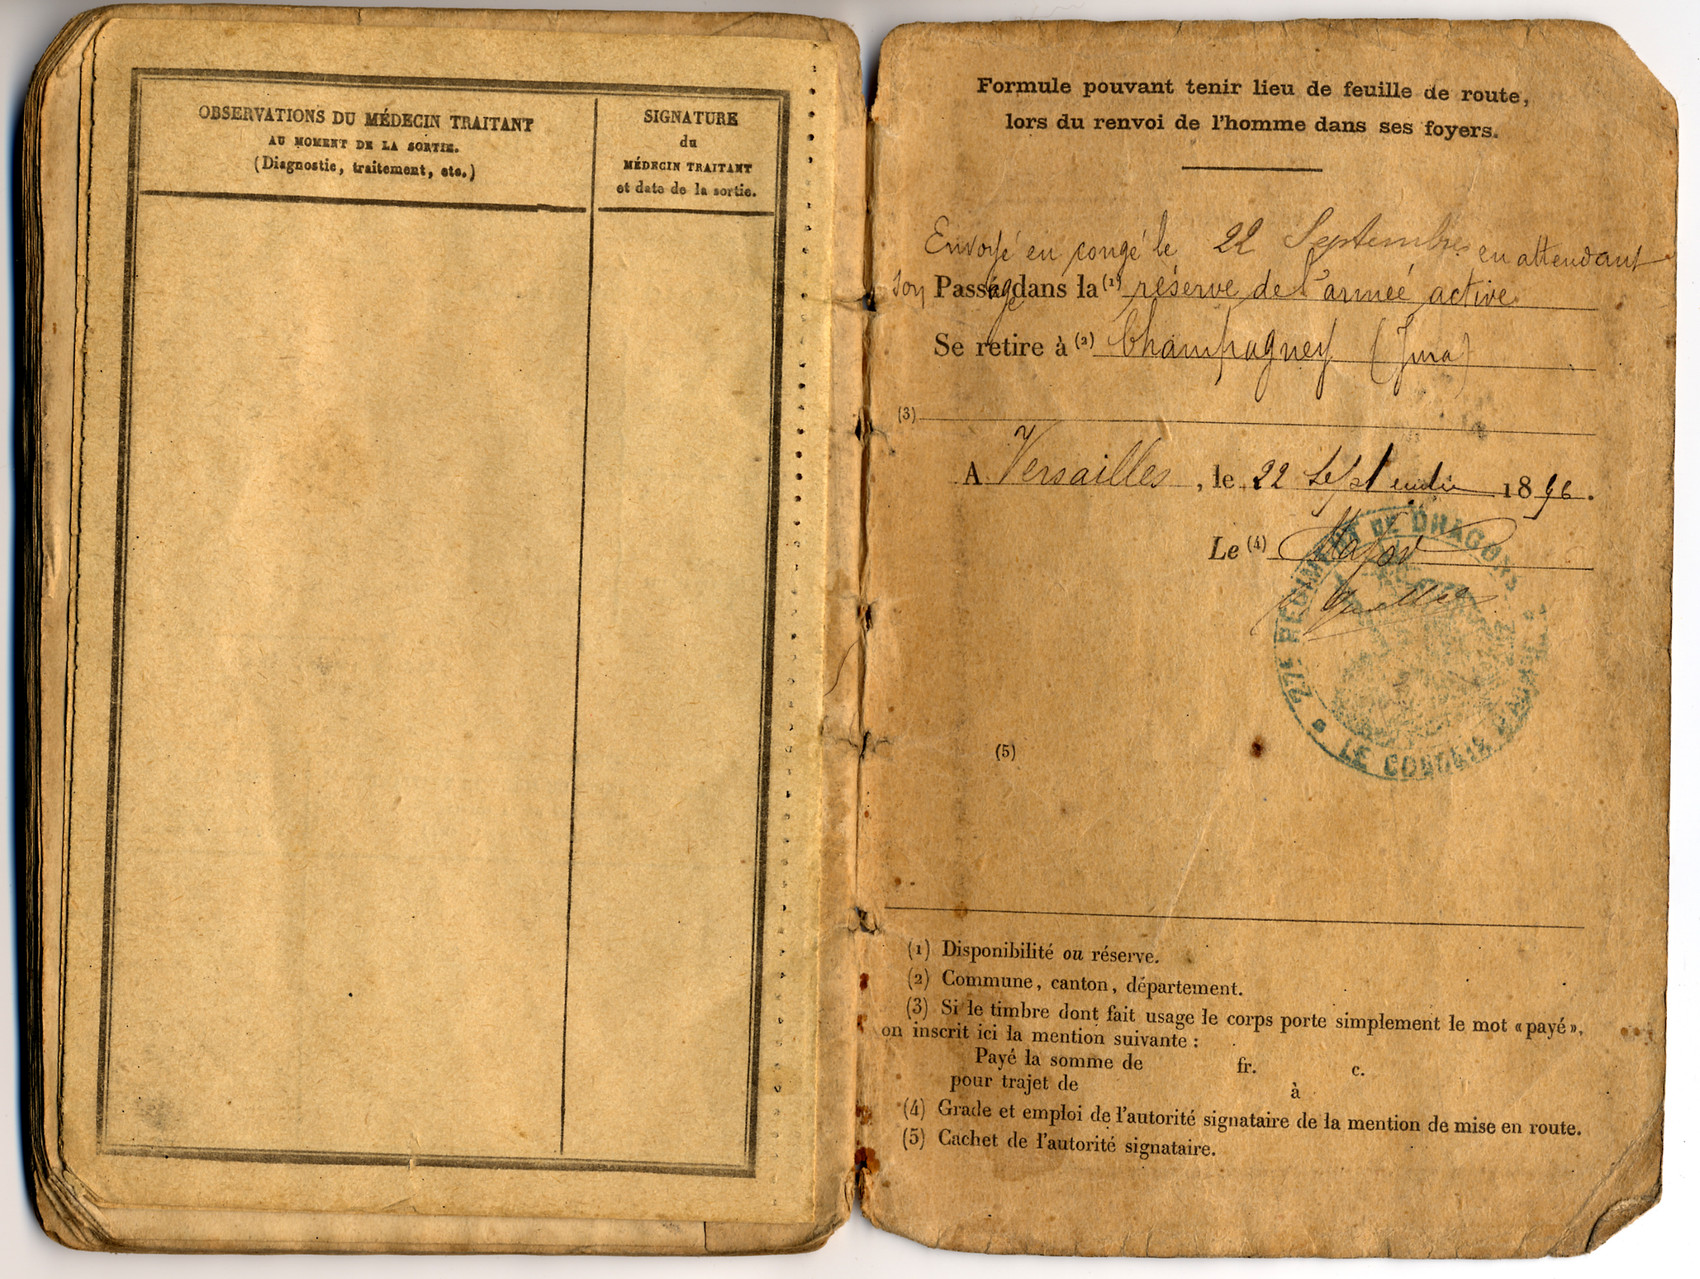 OBSERVATIONS DU MÉDECIN TRAITANT
AU MOMENT DE LA SORTIE.
(Diagnostic, traitement, etc.)
SIGNATURE
du
MÉDECIN TRAITANT
et date de la sortie.
Formule pouvant tenir lieu de feuille de route,
lors du renvoi de l'homme dans ses foyers.
Envoyé en congé le 22 Septembre en attendant
son Passage dans la (1) réserve de l'armée active
Se retire à (2) Champagney (Jura)
(3)
A Versailles, le 22 Septembre 1896.
Le (4) Major
27e RÉGIMENT DE DRAGONS
LE CONSEIL
(5)
(1) Disponibilité ou réserve.
(2) Commune, canton, département.
(3) Si le timbre dont fait usage le corps porte simplement le mot « payé »,
on inscrit ici la mention suivante :
Payé la somme de fr. c.
pour trajet de à
(4) Grade et emploi de l'autorité signataire de la mention de mise en route.
(5) Cachet de l'autorité signataire.